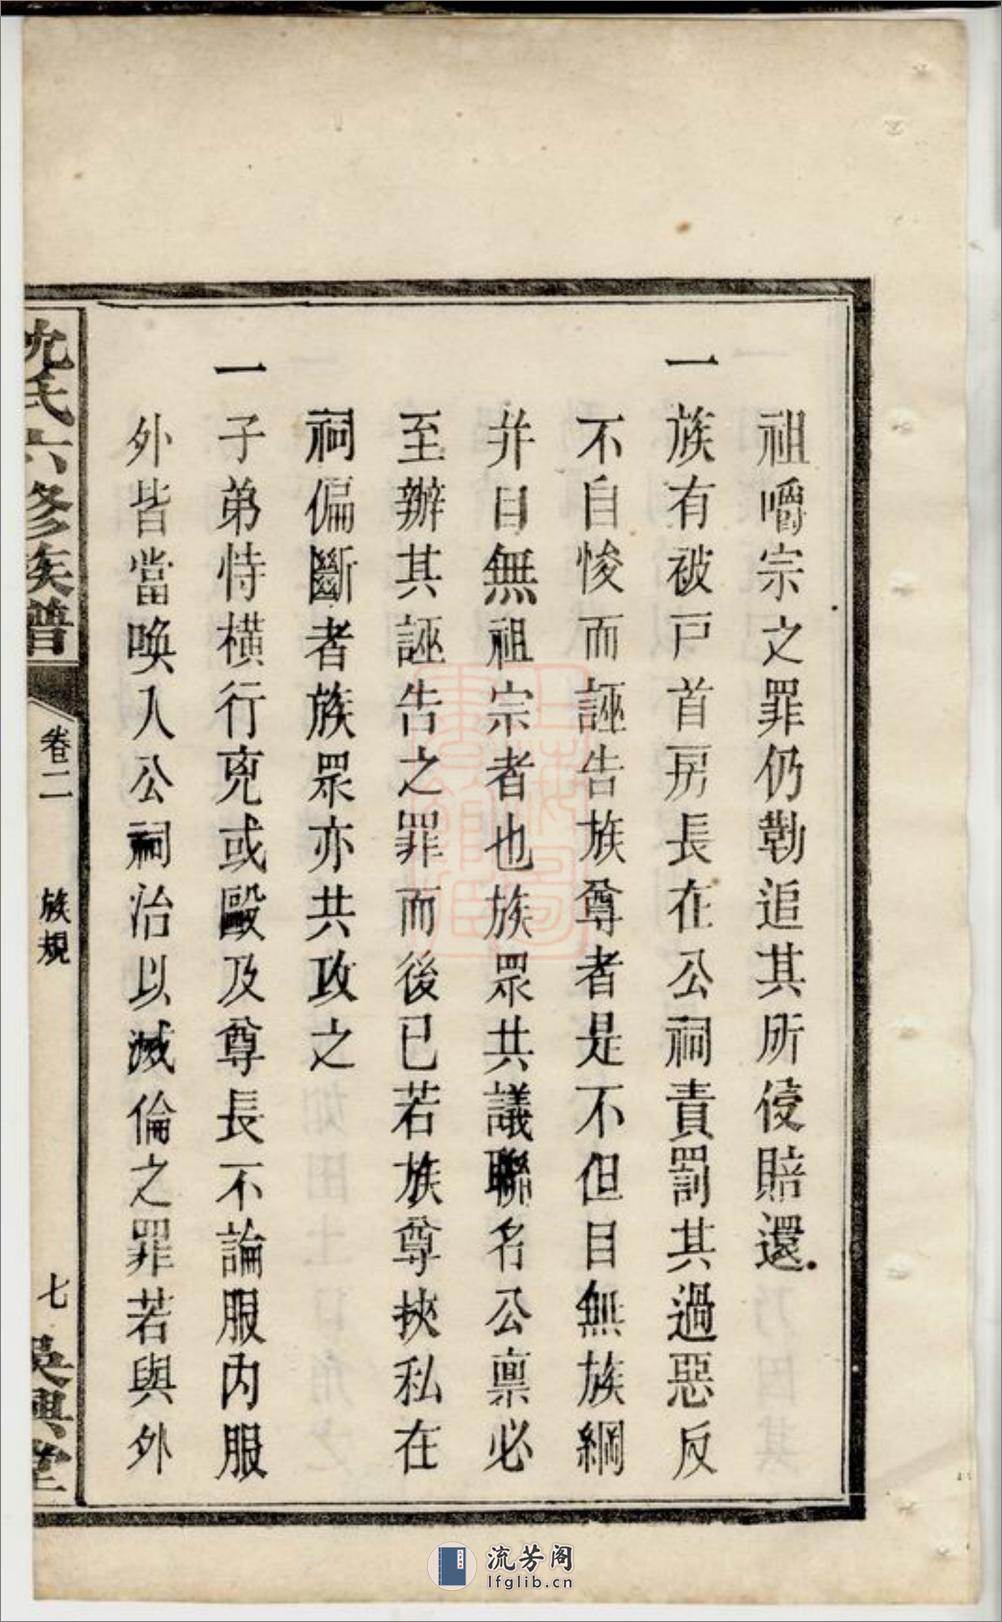 祖嚼宗之罪仍勒追其所侵賠還
一族有被戸首房長在公祠責罰其過惡反
不自悛而誣告族尊者是不但目無族綱
并目無祖宗者也族眾共議聯名公稟必
至辦其誣告之罪而後已若族尊挾私在
祠偏斷者族眾亦共攻之
一子弟恃橫行兇或毆及尊長不論服内服
外皆當喚入公祠治以滅倫之罪若與外
沈氏六修族譜
卷二
族規
七
吳興堂
上海圖書館藏
流芳阁
lfglib.cn